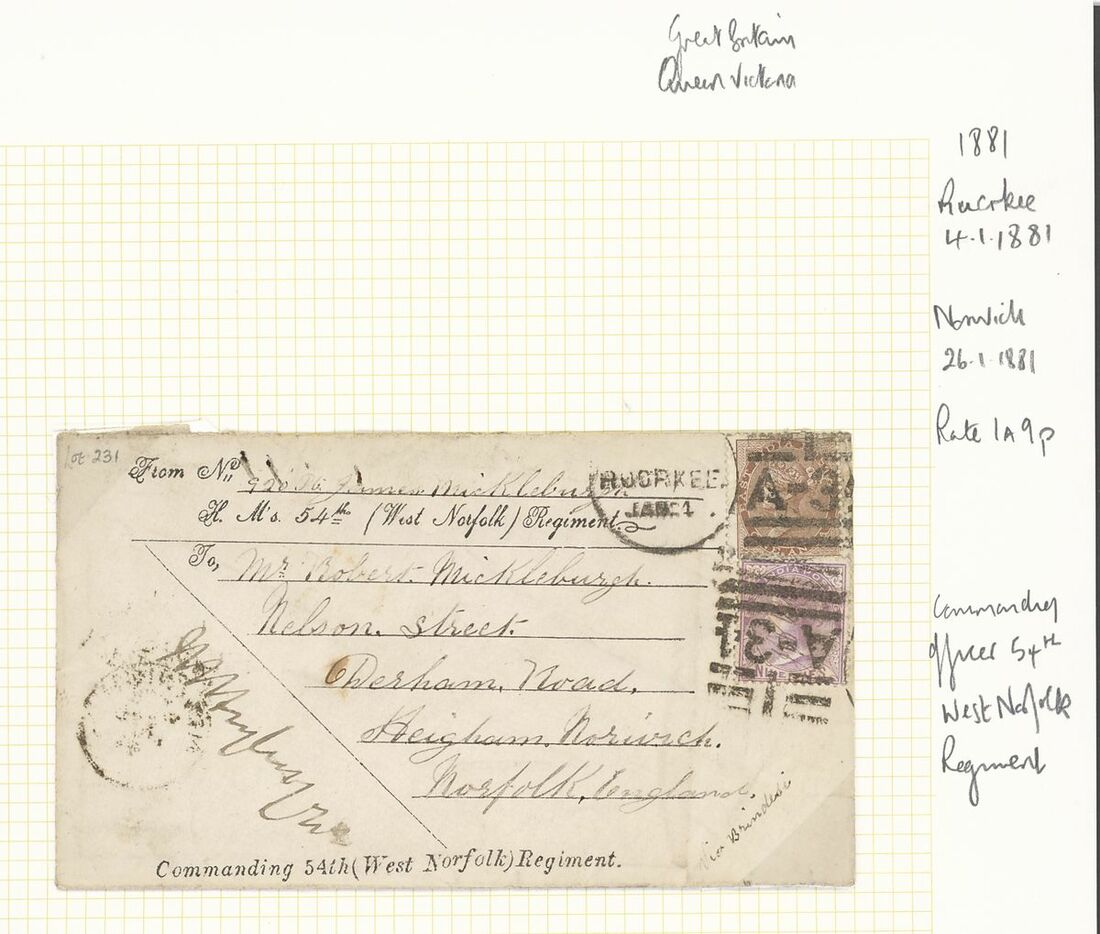 Great Britain
Queen Victoria
1881
Roorkee
4.1.1881
Norwich
26.1.1881
Rate 1A 9p
Commanding
officer 54th
West Norfolk
Regiment
Lot 231
From No. James Mickleburgh
H. M's. 54th (West Norfolk) Regiment
To, Mr Robert Mickleburgh.
Nelson. Street.
Derham. Road.
Heigham. Norwich.
Norfolk, England.
Via Brindisi
Commanding 54th (West Norfolk) Regiment.
ROORKEE
JAN:4
A-3
A-3